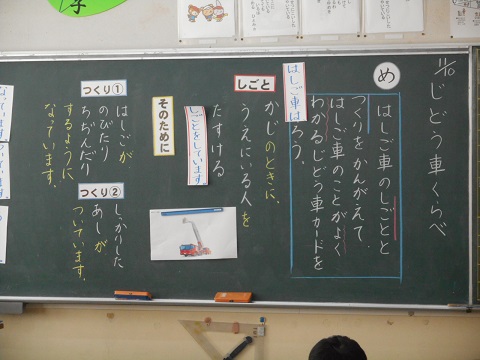 11/10
じどう車くらべ
め
はしご車のしごとと
つくりをかんがえて、
はしご車のことがよく
わかるじどう車カードを
つくろう。
はしご車は
しごと
かじのときに、
うえにいる人を
たすける
しごとをしています。
そのために
つくり①
はしごが
のびたり
ちぢんだり
するように
なっています。
つくり②
しっかりした
あしが
ついています。